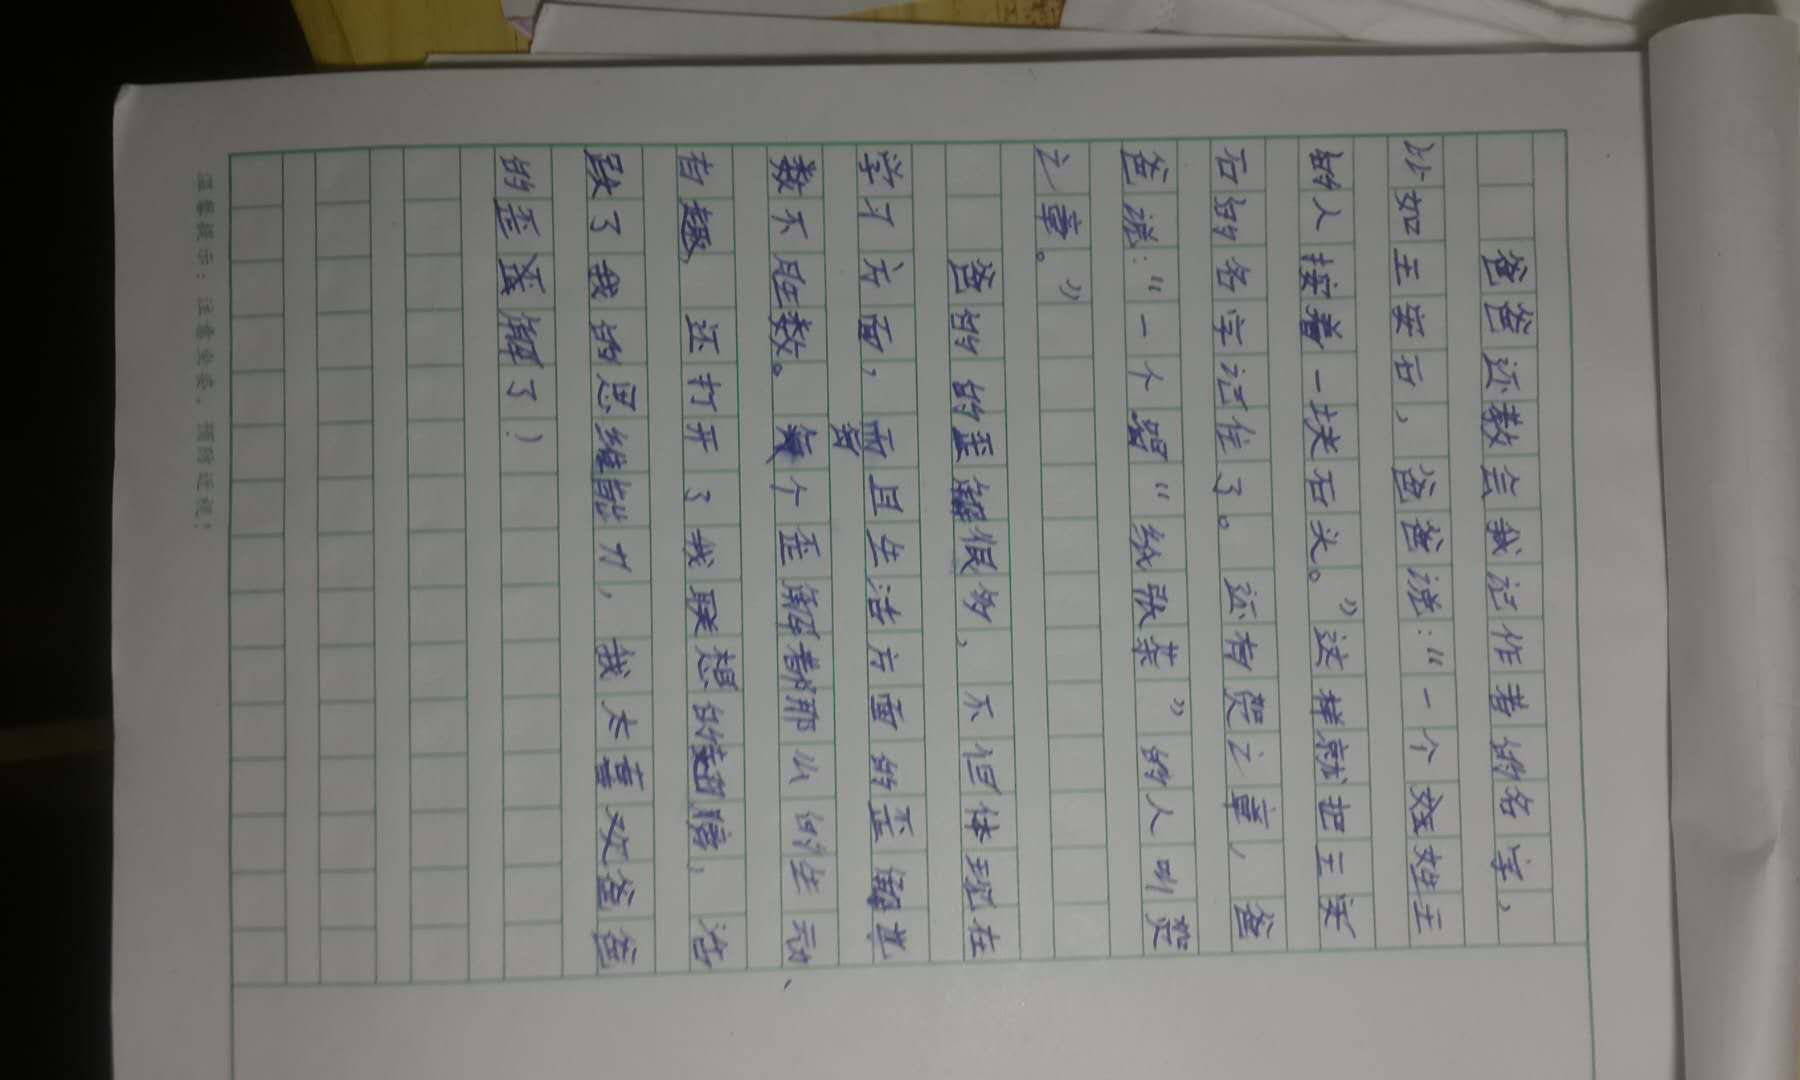 爸爸还教会我记作者的名字，
比如王安石，爸爸说：“一个姓王
的人按着一块石头。”这样就把王安
石的名字记住了。还有贺之章，爸
爸说：“一个喝“给敬茶”的人叫贺
之章。”
爸的的歪解很多，不但体现在
学习方面，而且生活方面的歪解其
数不胜数。每个歪解都那么的生动、
有趣，还打开了我联想的翅膀，活
跃了我的思维能力，我太喜欢爸爸
的歪歪解了！
温馨提示：注意坐姿，预防近视！